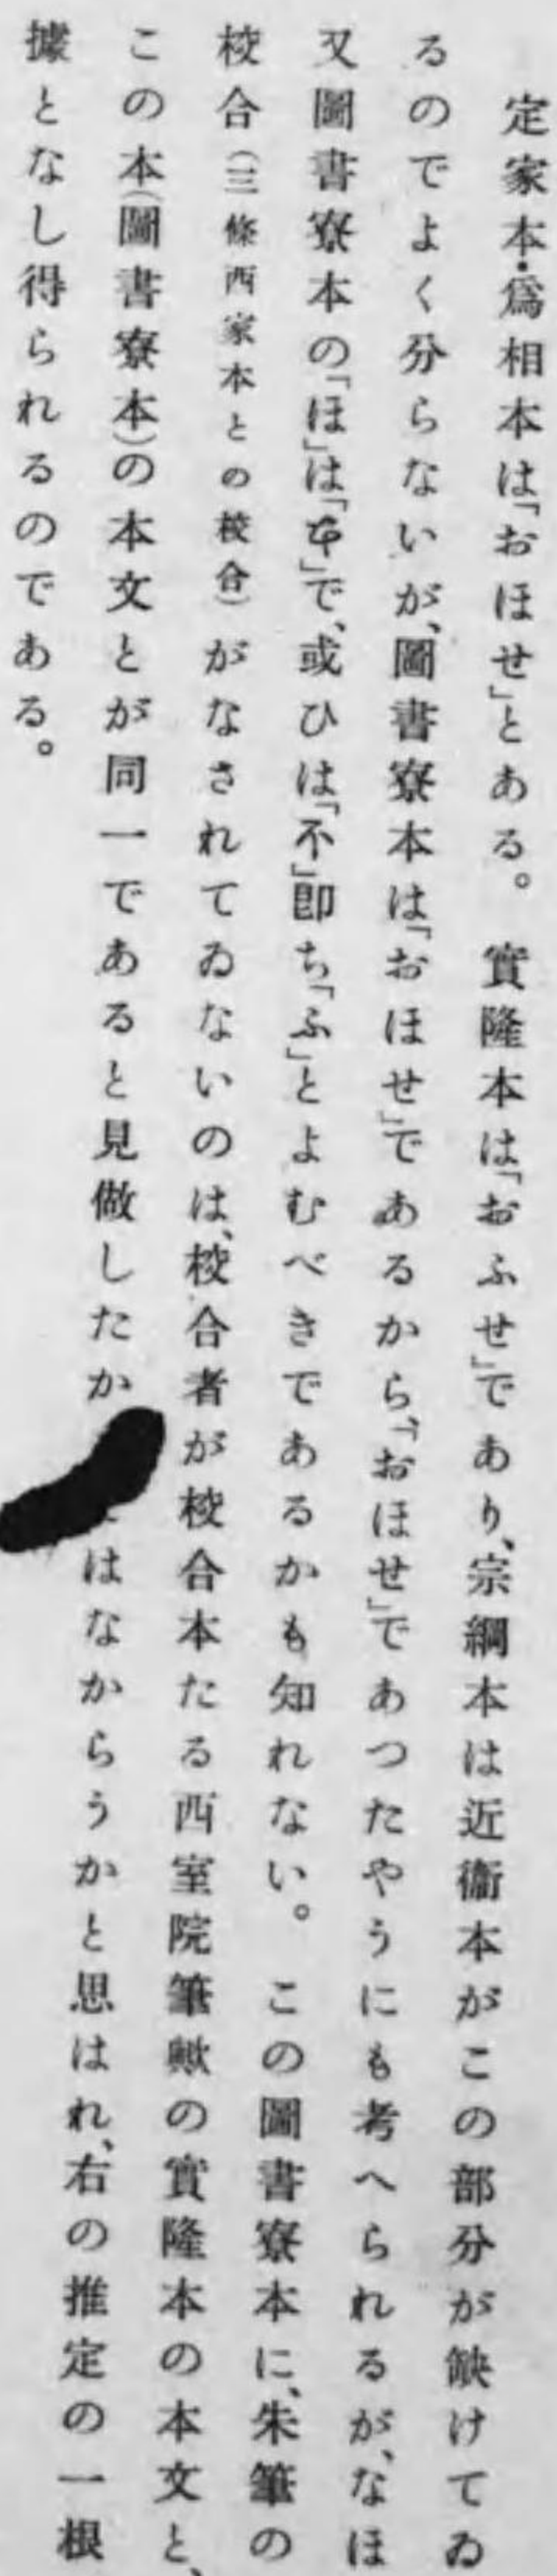 定家本・爲相本は「おほせ」とある。實隆本は「おふせ」であり、宗綱本は近衞本がこの部分が缺けてゐ
るのでよく分らないが、圖書寮本は「おほせ」であるから、「おほせ」であつたやうにも考へられるが、なほ
又圖書寮本の「ほ」は「」で、或ひは「不」卽ち「ふ」とよむべきであるかも知れない。この圖書寮本に、朱筆の
校合(三條西家本との校合)がなされてゐないのは、校合者が校合本たる西室院筆歟の實隆本の本文と、
この本(圖書寮本)の本文とが同一であると見做したか はなからうかと思はれ、右の推定の一根
據となし得られるのである。